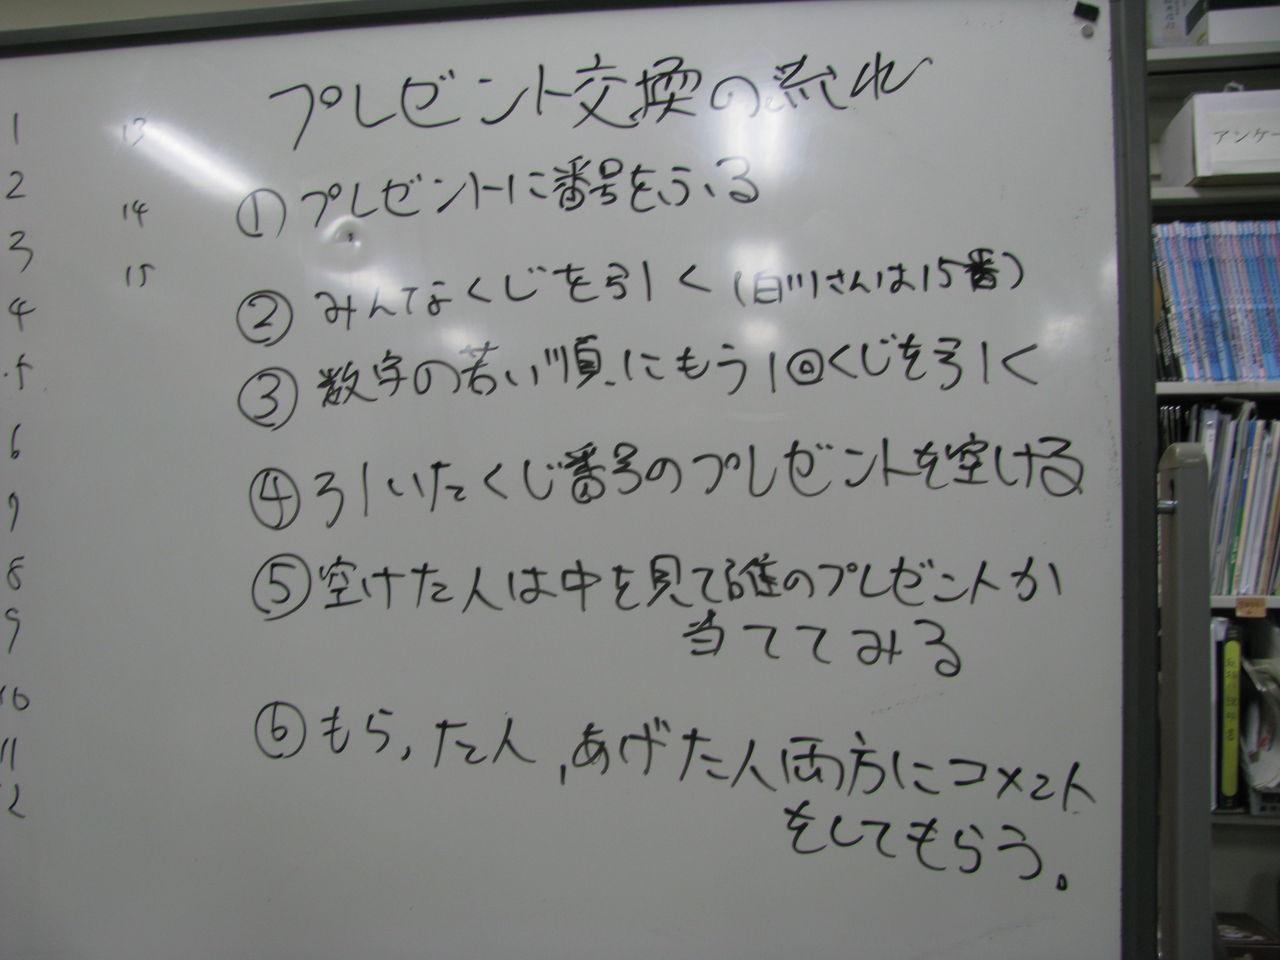 プレゼント交換の流れ
①プレゼントに番号をふる
②みんなくじを引く(白川さんは15番)
③数字の若い順にもう1回くじを引く
④引いたくじ番号のプレゼントを空ける
⑤空けた人は中を見て誰のプレゼントか
当ててみる
⑥もらった人,あげた人両方にコメント
をしてもらう。
1
2
3
4
5
6
7
8
9
10
11
12
13
14
15
アンケー